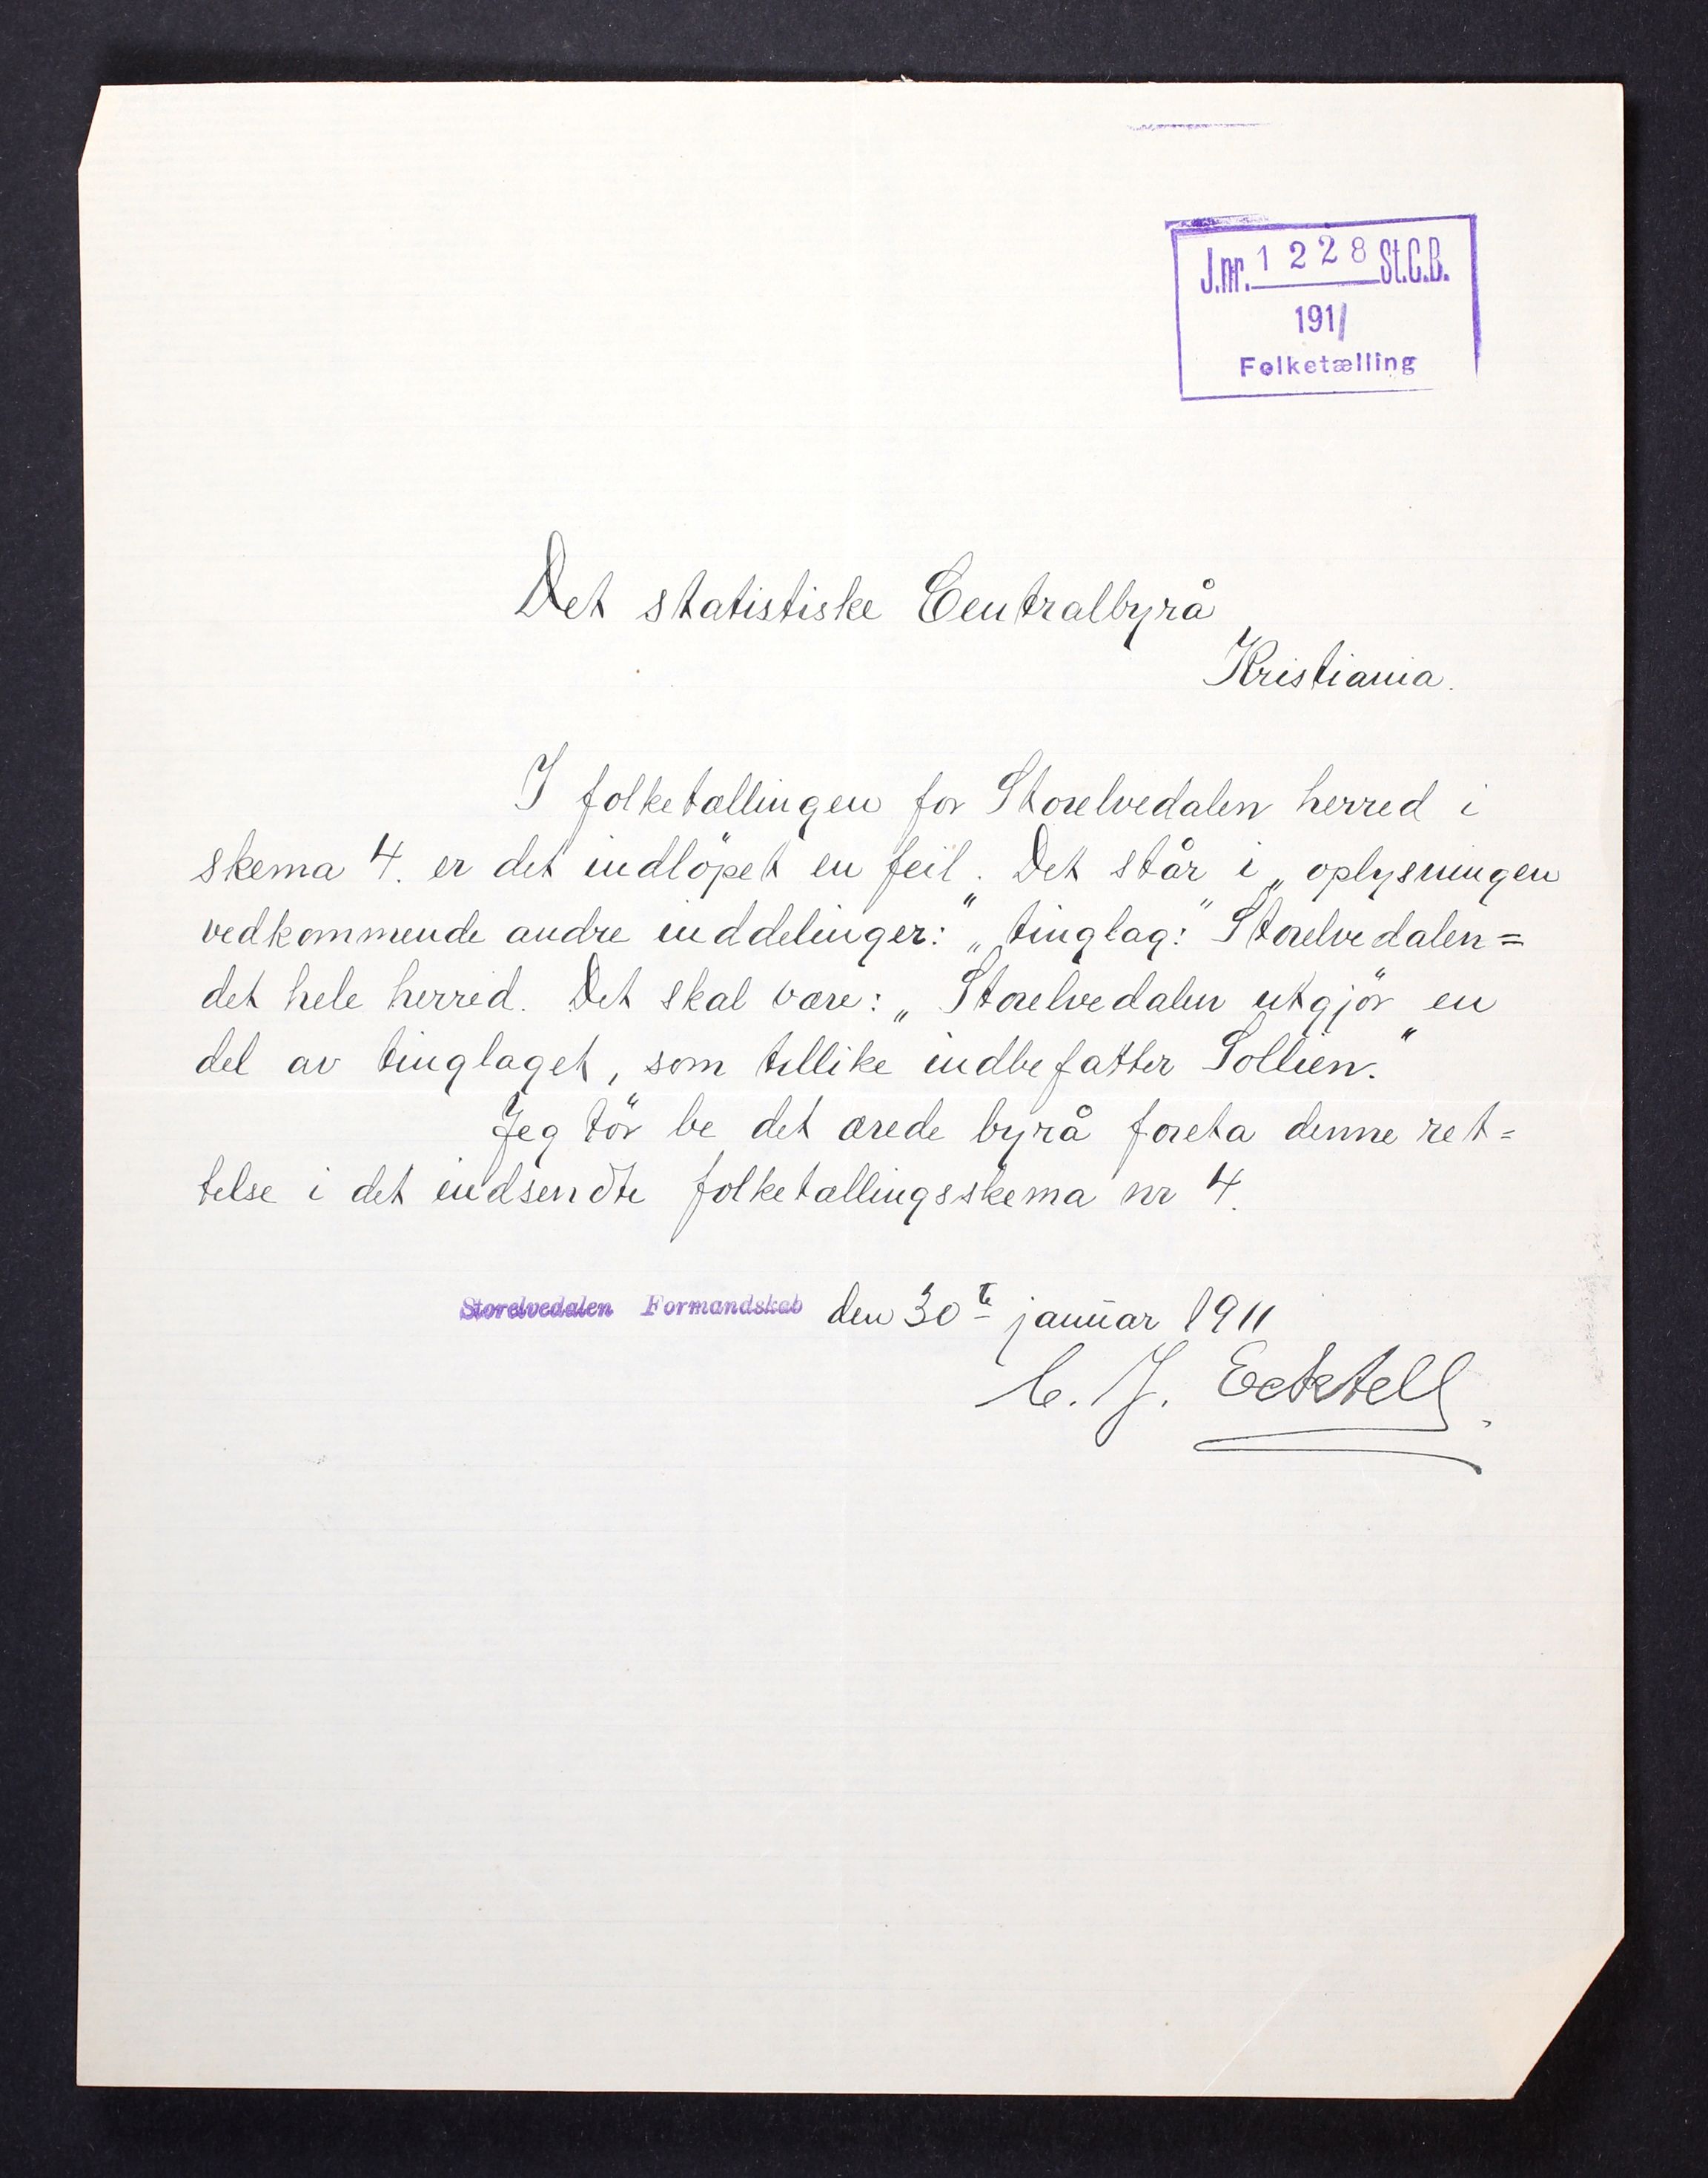 J.nr. 1228 St.C.B.
1911
Folketælling
Det statistiske Centralbyrå
Kristiania.
I folketællingen for Storelvedalen herred i
skema 4. er det indlöpet en feil. Det står i „oplysningen
vedkommende andre inddelinger:" „tinglag:" Storelvedalen=
det hele herred. Det skal være: „Storelvedalen utgjör en
del av tinglaget, som tillike indbefatter Sollien."
Jeg tör be det ærede byrå foreta denne ret=
telse i det indsendte folketællingsskema nr 4.
Storelvedalen Formandskab den 30te januar 1911
C. J.